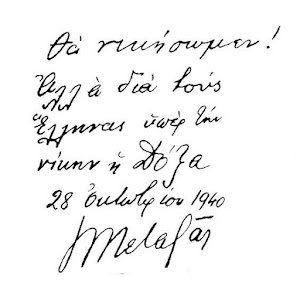 Θά νικήσωμεν!
Ἀλλὰ διά τούς
Ἕλληνας ὑπέρ τήν
νίκην ἡ Δόξα
28 ὀκτωβρίου 1940
Ι Μεταξᾶς